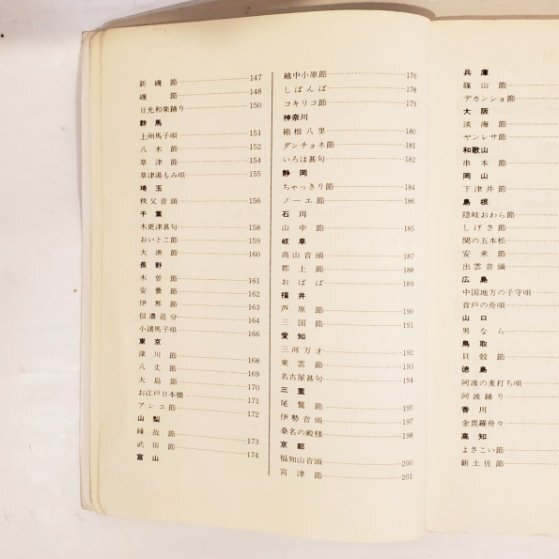 新磯節 147
磯節 148
日光和楽踊り 150
群馬
上州馬子唄 151
八木節 152
草津節 154
草津湯もみ唄 155
埼玉
秩父音頭 156
千葉
木更津甚句 158
おいとこ節 159
大漁節 160
長野
木曽節 161
安曇節 162
伊那節 163
信濃追分 164
小諸馬子唄 166
東京
深川節 168
八丈節 169
大島節 170
お江戸日本橋 171
アンコ節 172
山梨
縁故節 173
武田節 174
富山
越中小原節 176
しばんば 178
コキリコ節 179
神奈川
箱根八里 180
ダンチョネ節 181
いろは甚句 182
静岡
ちゃっきり節 184
ノーエ節 186
石川
山中節 185
岐阜
高山音頭 187
郡上節 188
おばば 189
福井
芦原節 190
三国節 191
愛知
三河万才 192
東雲節 193
名古屋甚句 194
三重
尾鷲節 195
伊勢音頭 197
桑名の殿様 198
京都
福知山音頭 200
宮津節 201
兵庫
篠山節
デカンショ節
大阪
淡海節
ヤンレサ節
和歌山
串本節
岡山
下津井節
島根
隠岐おわら節
しげさ節
関の五本松
安来節
出雲音頭
広島
中国地方の子守唄
音戸の舟唄
山口
男なら
鳥取
貝殻節
徳島
阿波の麦打ち唄
阿波踊り
香川
金毘羅舟々
高知
よさこい節
新土佐節